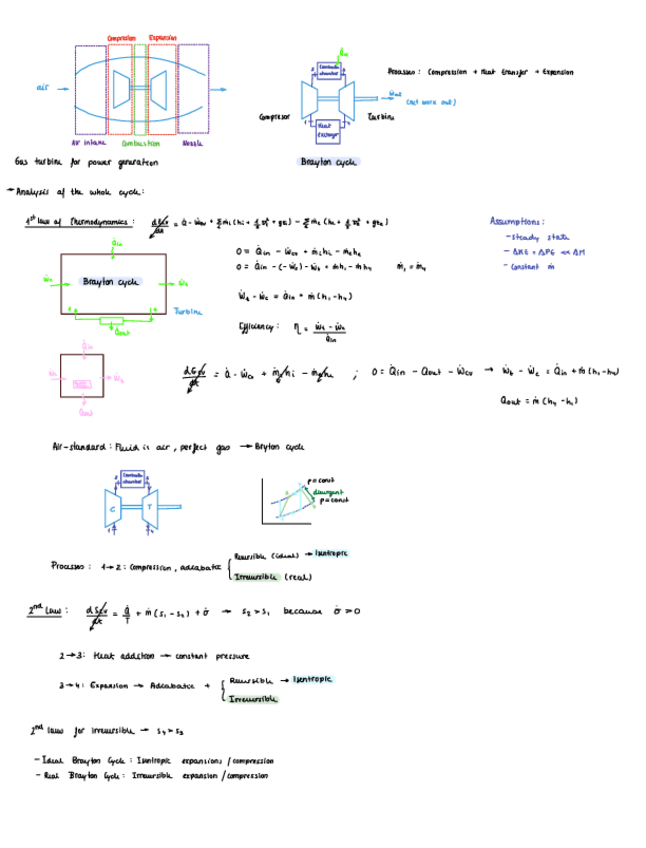 Compression Expansion
air
Air intake Combustion Nozzle
Gas turbine for power generation
Q̇in
Combustion chamber
2 3
Processes: Compression + Heat transfer + Expansion
Ẇout
(net work out)
Compresor Turbine
1 4
Heat exchanger
Brayton cycle
→ Analysis of the whole cycle:
1st law of Thermodynamics:
Assumptions:
- steady state
- ΔKE = ΔPE << ΔH
- constant ṁ
Q̇in
Brayton cycle
Ẇc Ẇt
Turbine
Q̇out
0 = Q̇in - Ẇcv + ṁ1h1 - ṁ4h4
0 = Q̇in - (-Ẇc) - Ẇt + ṁh1 - ṁh4 ṁ1 = ṁ4
Ẇt - Ẇc = Q̇in + ṁ(h1-h4)
Efficiency: η = (Ẇt - Ẇc)/Q̇in
Q̇in
Ẇt
Q̇out
; 0 = Q̇in - Q̇out - Ẇcv → Ẇt - Ẇc = Q̇in + ṁ(h1-h4)
Q̇out = ṁ(h4-h1)
Air-standard: Fluid is air, perfect gas → Bryton cycle
Combustion chamber
2 3
C T
1 4
p=const
divergent
p=const
Processes: 1→2: Compression, adiabatic
Reversible (ideal) → Isentropic
Irreversible (real)
2nd law: dScv/dt = Q̇/T + ṁ(s1-s2) + σ̇ → s2 > s1 because σ̇ > 0
2→3: Heat addition → constant pressure
3→4: Expansion → Adiabatic +
Reversible → Isentropic
Irreversible
2nd law for irreversible → s4 > s3
- Ideal Brayton Cycle: Isentropic expansions/compression
- Real Brayton Cycle: Irreversible expansion/compression